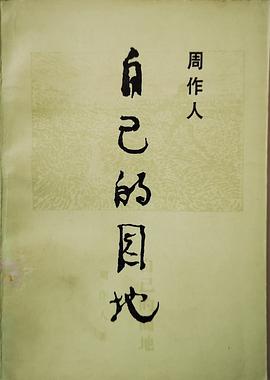 周作人
自己的園地